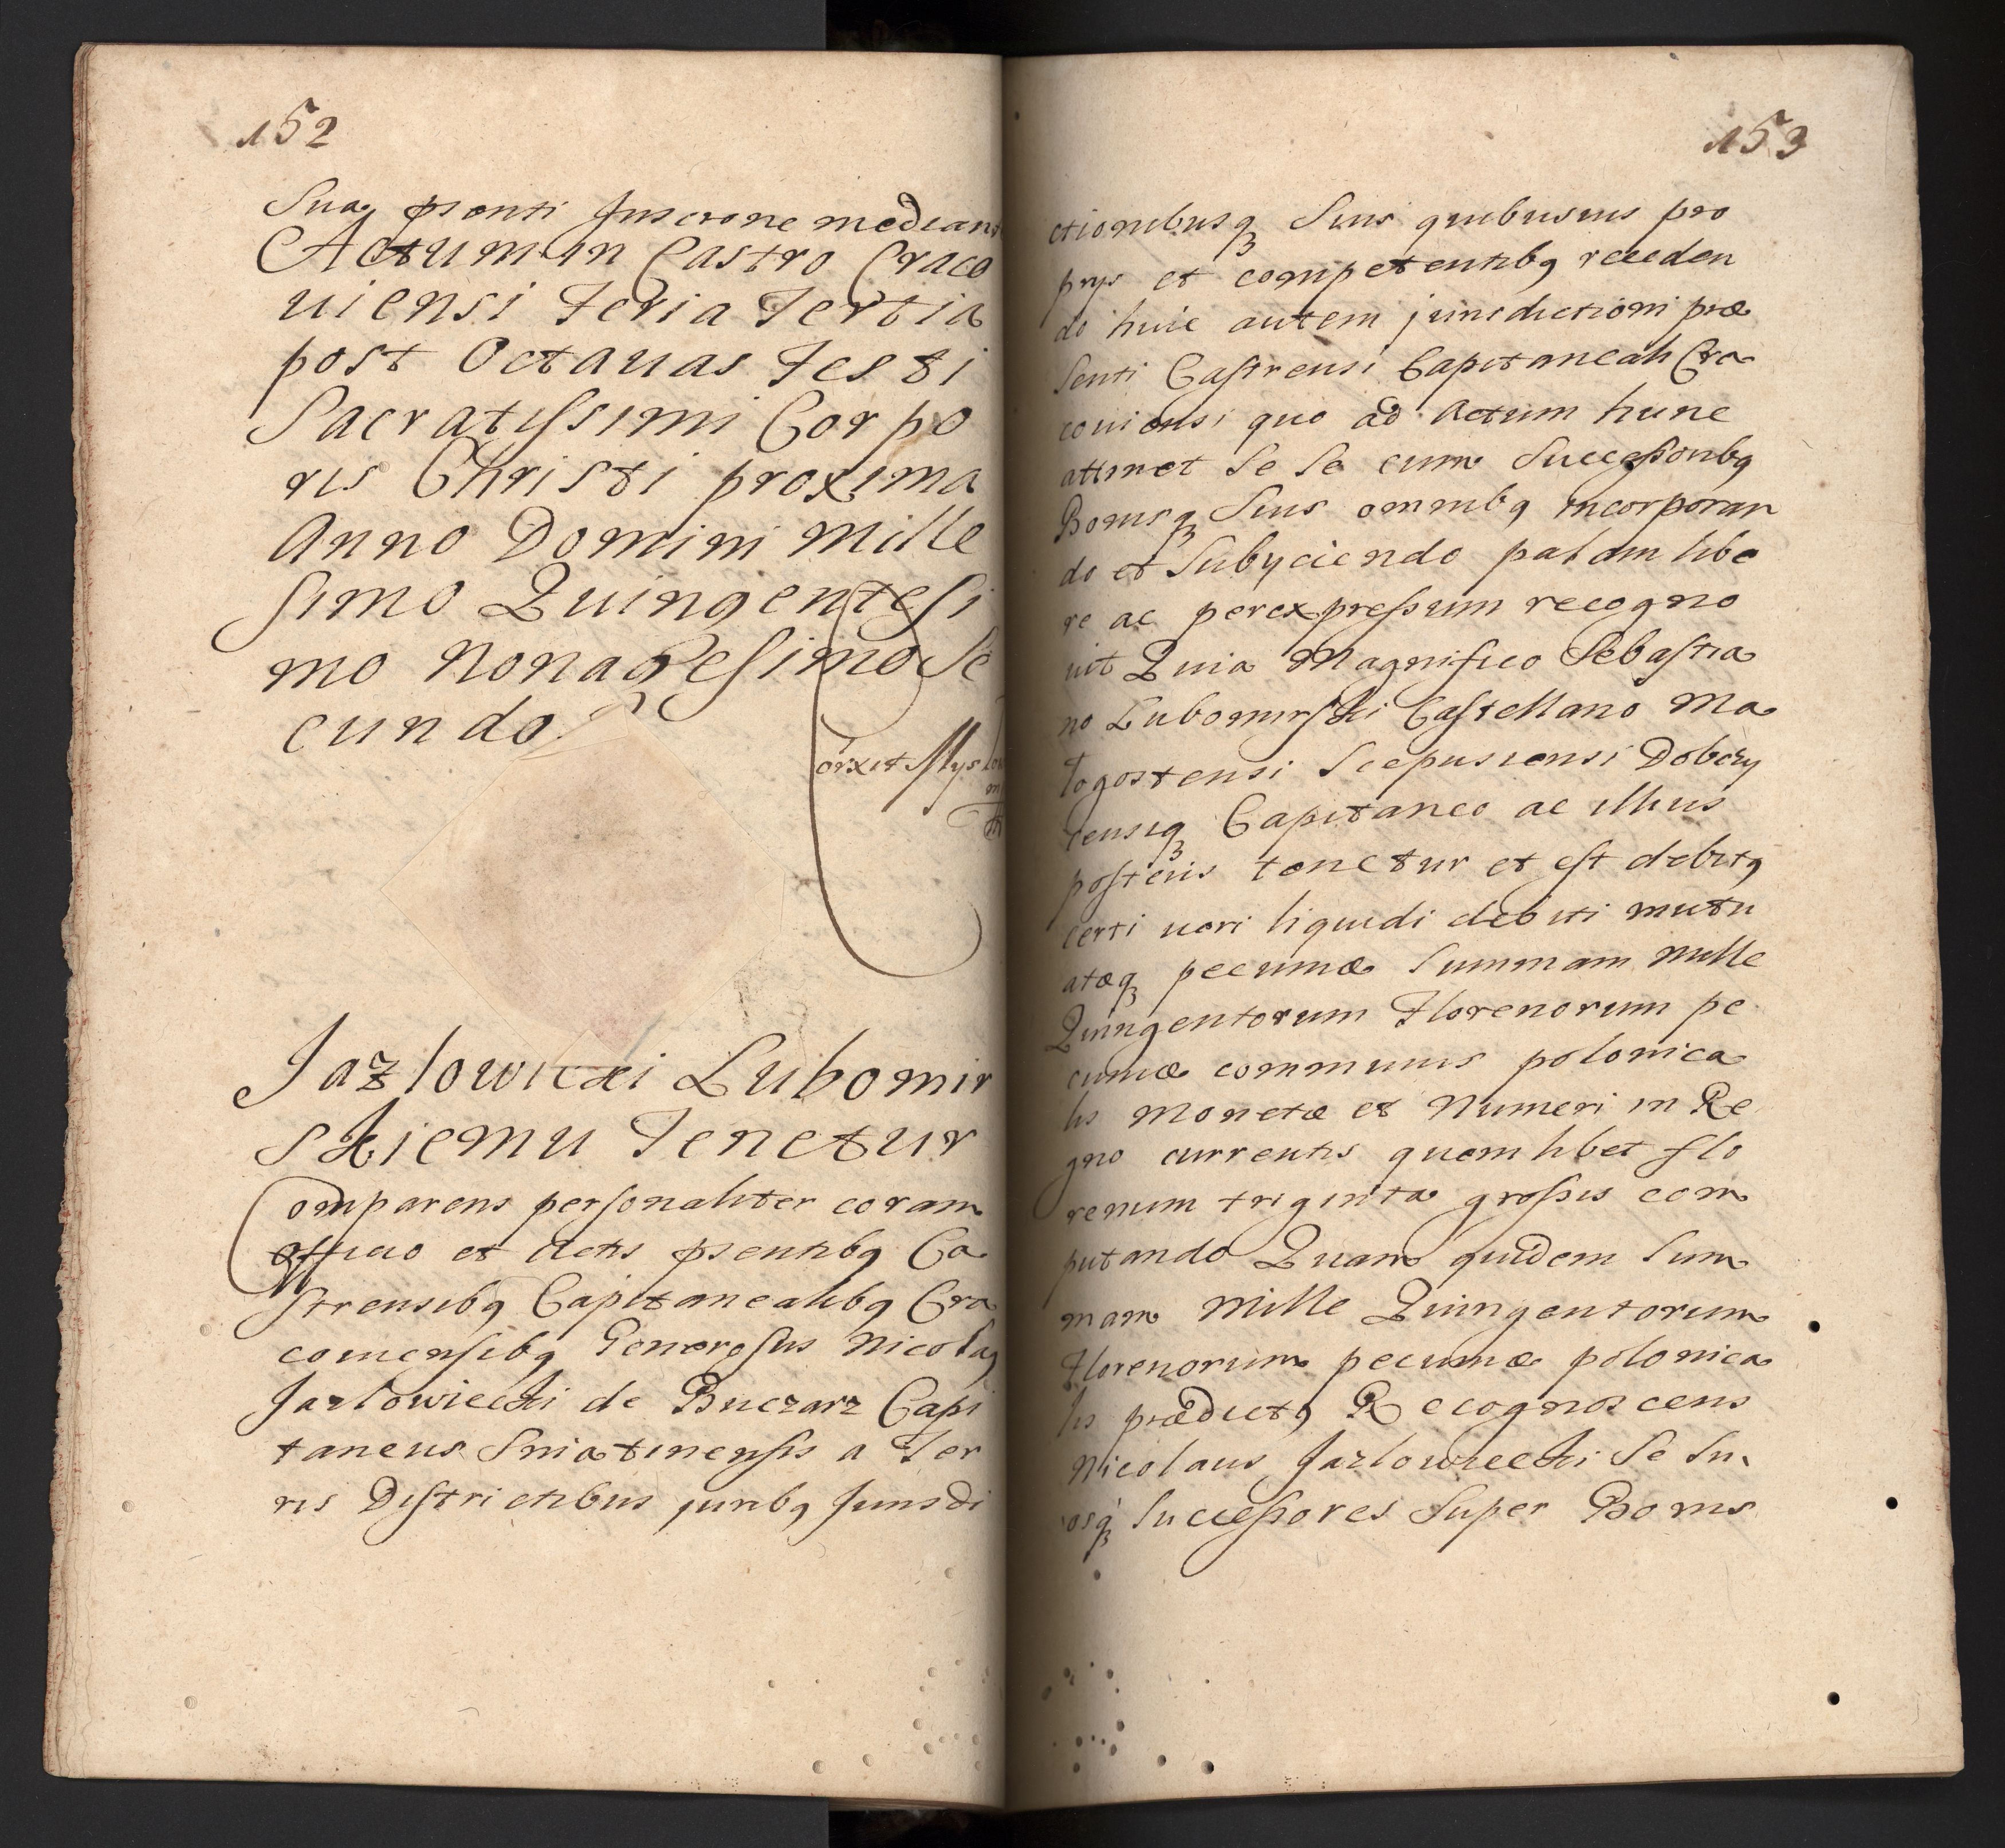 152
Sua pſenti Inscrone median
Actum in Castro Craco
uiensi Feria Tertia
post Octauas Festi
Sacratiſsimi Corpo
ris Christi proxima
Anno Domini Mille
simo Quingentesi
mo Nonagesimo Se
cundo.
Jazlowiecki Lubomir
skiemu Tenetur
Comparens perſonaliter coram
officio et Actis pſentibq Ca
strensibq Capitanealibq Cra
couiensibq Generosus Nicolaq
Jazlowiecki de Buczacz Capi
taneus Sniatinensis a Ter
ris Districtibus juribq Jurisdi
153
ctionibusq Suis quibusuis pro
prys et competentibq receden
do huic autem jurisdictioni præ
Senti Caſtrensi Capitaneali Cra
couiensi quo ad Actum hunc
attinet Se Se cum Succeſsoribq
Bonisq Suis omnibq incorporan
do et Subyciendo palam libe
re ac per expreſsum recogno
uit Quia Magnifico Sebaſtia
no Lubomirſki Caſtellano Ma
logostensi Scepusiensi Dobczy
censiq Capitaneo ac illius
poſteris tenetur et eſt debitq
certi ueri liquidi debiti mutu
atæq pecuniæ Summam Mille
Quingentorum Florenorum pe
cuniæ communis polonica
lis Monetæ et Numeri in Re
gno currentis quemlibet flo
renum triginta groſsis com
putando Quam quidem Sum
mam Mille Quingentorum
Florenorum pecuniæ polonica
lis prædictq Recognoscens
Nicolaus Jazlowiecki Se Su
osq Succeſsores Super Bonis